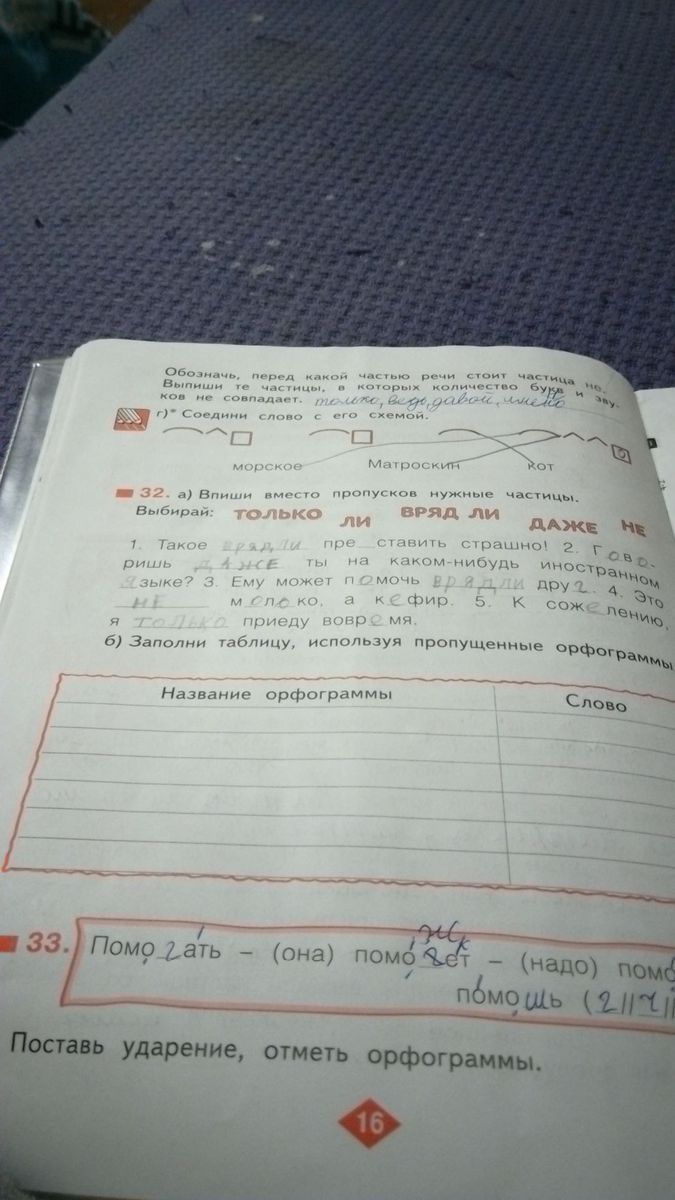 Обозначь, перед какой частью речи стоит частица не.
Выпиши те частицы, в которых количество букв и зву-
ков не совпадает. только, ведь, давай, имено
г)* Соедини слово с его схемой.
морское Матроскин кот
32. а) Впиши вместо пропусков нужные частицы.
Выбирай: ТОЛЬКО ЛИ ВРЯД ЛИ ДАЖЕ НЕ
1. Такое врядли пре_ставить страшно! 2. Гово-
ришь даже ты на каком-нибудь иностранном
языке? 3. Ему может помочь врядли друг. 4. Это
не молоко, а кефир. 5. К сожелению,
я только приеду вовремя.
б) Заполни таблицу, используя пропущенные орфограммы
Название орфограммы Слово
33. Помогать – (она) поможет – (надо) помо
помошь (г//ч//
Поставь ударение, отметь орфограммы.
16